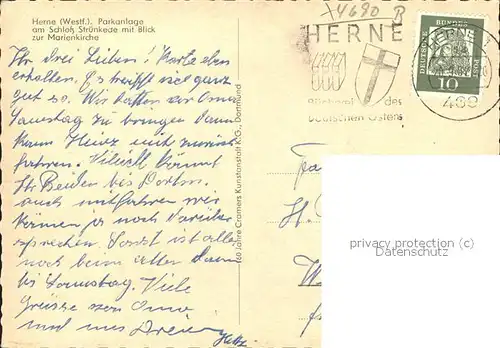 Herne (Westf.), Parkanlage
am Schloß Strünkede mit Blick
zur Marienkirche
Ihr drei Lieben! Karte eben
erhalten. Es trifft sich ganz
gut so. Wir hatten vor Oma
Samstag zu bringen dann
kann Heinz mit zurück
fahren. Vielleicht könnt
Ihr Beiden bis Dortm.
auch mitfahren wir
können ja noch darüber
sprechen. Sonst ist alles
noch beim alten dann
bis Samstag. Viele
Grüsse von Oma
und uns Dreien
60 Jahre Cramers Kunstanstalt KG., Dortmund
74690 B
HERNE
des
Deutschen Ostens
DEUTSCHE BUNDESPOST
10
HERNE
469
privacy protection (c)
Datenschutz